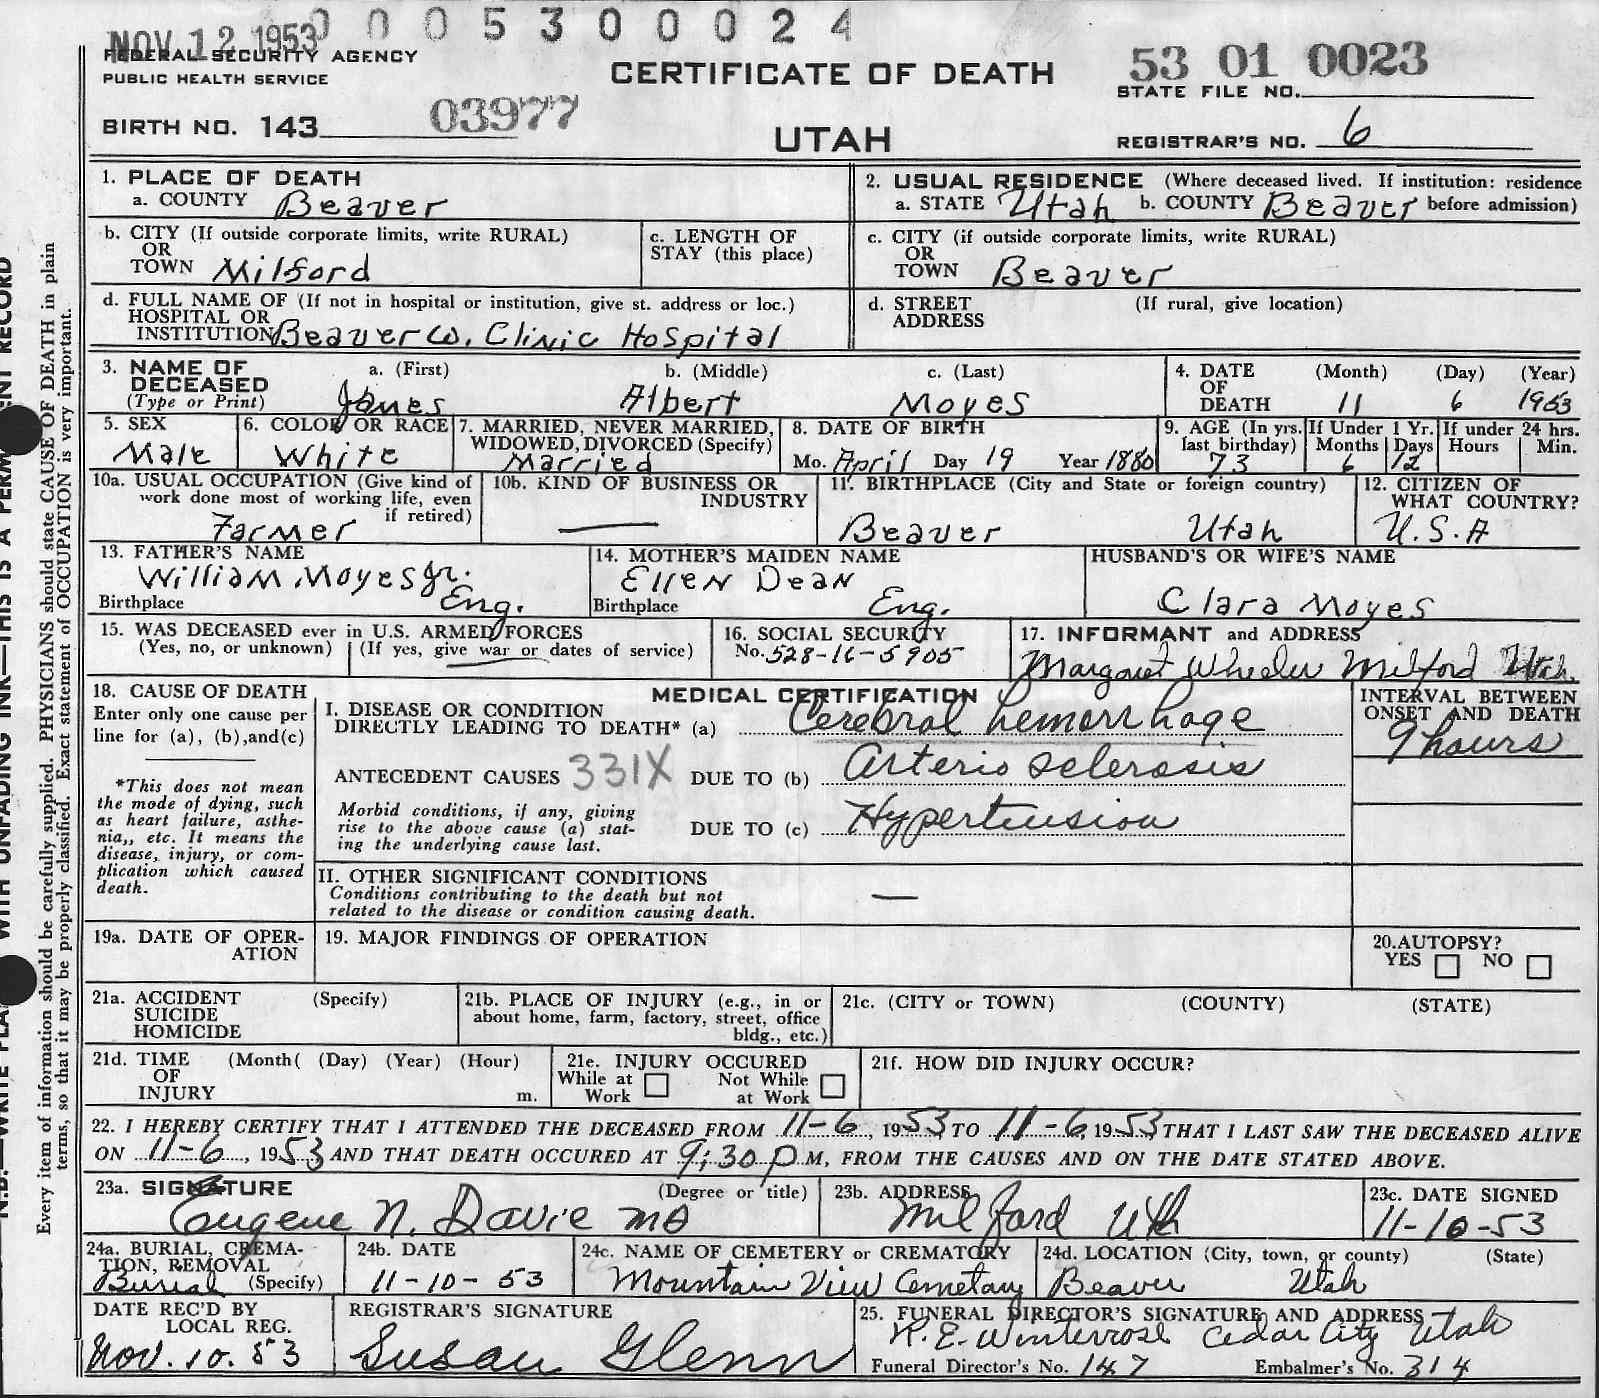 00053 00024
NOV 12 1953
FEDERAL SECURITY AGENCY
PUBLIC HEALTH SERVICE
CERTIFICATE OF DEATH
UTAH
53 01 0023
STATE FILE NO.
BIRTH NO. 143 03977
REGISTRAR'S NO. 6
1. PLACE OF DEATH
a. COUNTY Beaver
2. USUAL RESIDENCE (Where deceased lived. If institution: residence
a. STATE Utah b. COUNTY Beaver before admission)
b. CITY (If outside corporate limits, write RURAL)
OR
TOWN Milford
c. LENGTH OF
STAY (this place)
c. CITY (if outside corporate limits, write RURAL)
OR
TOWN Beaver
d. FULL NAME OF (If not in hospital or institution, give st. address or loc.)
HOSPITAL OR
INSTITUTION Beaver Co. Clinic Hospital
d. STREET (If rural, give location)
ADDRESS
3. NAME OF a. (First) b. (Middle) c. (Last)
DECEASED
(Type or Print) James Albert Moyes
4. DATE (Month) (Day) (Year)
OF
DEATH 11 6 1953
5. SEX
Male
6. COLOR OR RACE
White
7. MARRIED, NEVER MARRIED,
WIDOWED, DIVORCED (Specify)
Married
8. DATE OF BIRTH
Mo. April Day 19 Year 1880
9. AGE (In yrs. last birthday) 73
If Under 1 Yr. Months 6 Days 12
If under 24 hrs. Hours Min.
10a. USUAL OCCUPATION (Give kind of
work done most of working life, even
if retired)
Farmer
10b. KIND OF BUSINESS OR
INDUSTRY
—
11. BIRTHPLACE (City and State or foreign country)
Beaver Utah
12. CITIZEN OF
WHAT COUNTRY?
U.S.A
13. FATHER'S NAME
William Moyes Jr.
Birthplace Eng.
14. MOTHER'S MAIDEN NAME
Ellen Dean
Birthplace Eng.
HUSBAND'S OR WIFE'S NAME
Clara Moyes
15. WAS DECEASED ever in U.S. ARMED FORCES
(Yes, no, or unknown) (If yes, give war or dates of service)
16. SOCIAL SECURITY
No. 528-16-5905
17. INFORMANT and ADDRESS
Margaret Wheeler Milford Utah.
18. CAUSE OF DEATH
Enter only one cause per
line for (a), (b), and (c)
*This does not mean
the mode of dying, such
as heart failure, asthe-
nia,, etc. It means the
disease, injury, or com-
plication which caused
death.
MEDICAL CERTIFICATION
I. DISEASE OR CONDITION
DIRECTLY LEADING TO DEATH* (a) Cerebral hemorrhage
ANTECEDENT CAUSES 331X DUE TO (b) Arterio sclerosis
Morbid conditions, if any, giving
rise to the above cause (a) stat-
ing the underlying cause last.
DUE TO (c) Hypertension
INTERVAL BETWEEN
ONSET AND DEATH
9 hours
II. OTHER SIGNIFICANT CONDITIONS
Conditions contributing to the death but not
related to the disease or condition causing death.
—
19a. DATE OF OPER-
ATION
19. MAJOR FINDINGS OF OPERATION
20. AUTOPSY?
YES NO
21a. ACCIDENT (Specify)
SUICIDE
HOMICIDE
21b. PLACE OF INJURY (e.g., in or
about home, farm, factory, street, office
bldg., etc.)
21c. (CITY or TOWN) (COUNTY) (STATE)
21d. TIME (Month( (Day) (Year) (Hour)
OF
INJURY m.
21e. INJURY OCCURED
While at Work Not While at Work
21f. HOW DID INJURY OCCUR?
22. I HEREBY CERTIFY THAT I ATTENDED THE DECEASED FROM 11-6, 1953, TO 11-6, 1953, THAT I LAST SAW THE DECEASED ALIVE
ON 11-6, 1953 AND THAT DEATH OCCURED AT 9:30 P M, FROM THE CAUSES AND ON THE DATE STATED ABOVE.
23a. SIGNATURE (Degree or title)
Eugene N. Davie MD
23b. ADDRESS
Milford Utah
23c. DATE SIGNED
11-10-53
24a. BURIAL, CREMA-
TION, REMOVAL
Burial (Specify)
24b. DATE
11-10-53
24c. NAME OF CEMETERY or CREMATORY
Mountain View Cemetary
24d. LOCATION (City, town, or county) (State)
Beaver Utah
DATE REC'D BY
LOCAL REG.
Nov. 10. 53
REGISTRAR'S SIGNATURE
Susan Glenn
25. FUNERAL DIRECTOR'S SIGNATURE AND ADDRESS
K. E. Winterrose Cedar City Utah
Funeral Director's No. 147 Embalmer's No. 314
Every item of information should be carefully supplied. PHYSICIANS should state CAUSE OF DEATH in plain
terms, so that it may be properly classified. Exact statement of OCCUPATION is very important.
WITH UNFADING INK—THIS IS A
RECORD